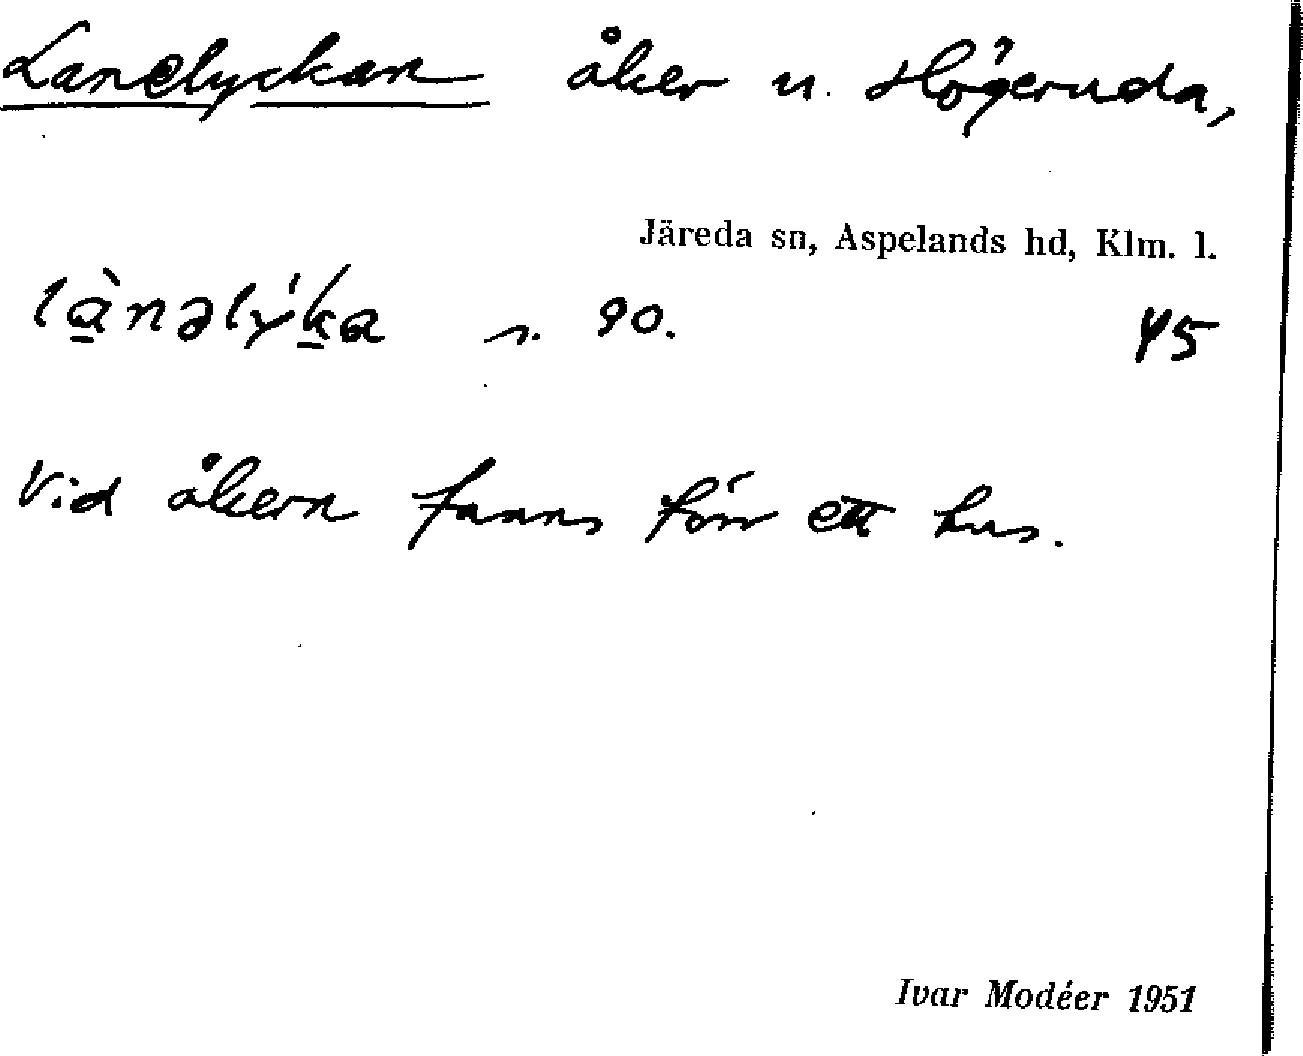 Lanelyckan åker u. Högeruda,
Järeda sn, Aspelands hd, Klm. l.
là̱nəlýḵa s. 90. 45
Vid åkern fanns förr ett hus.
Ivar Modéer 1951